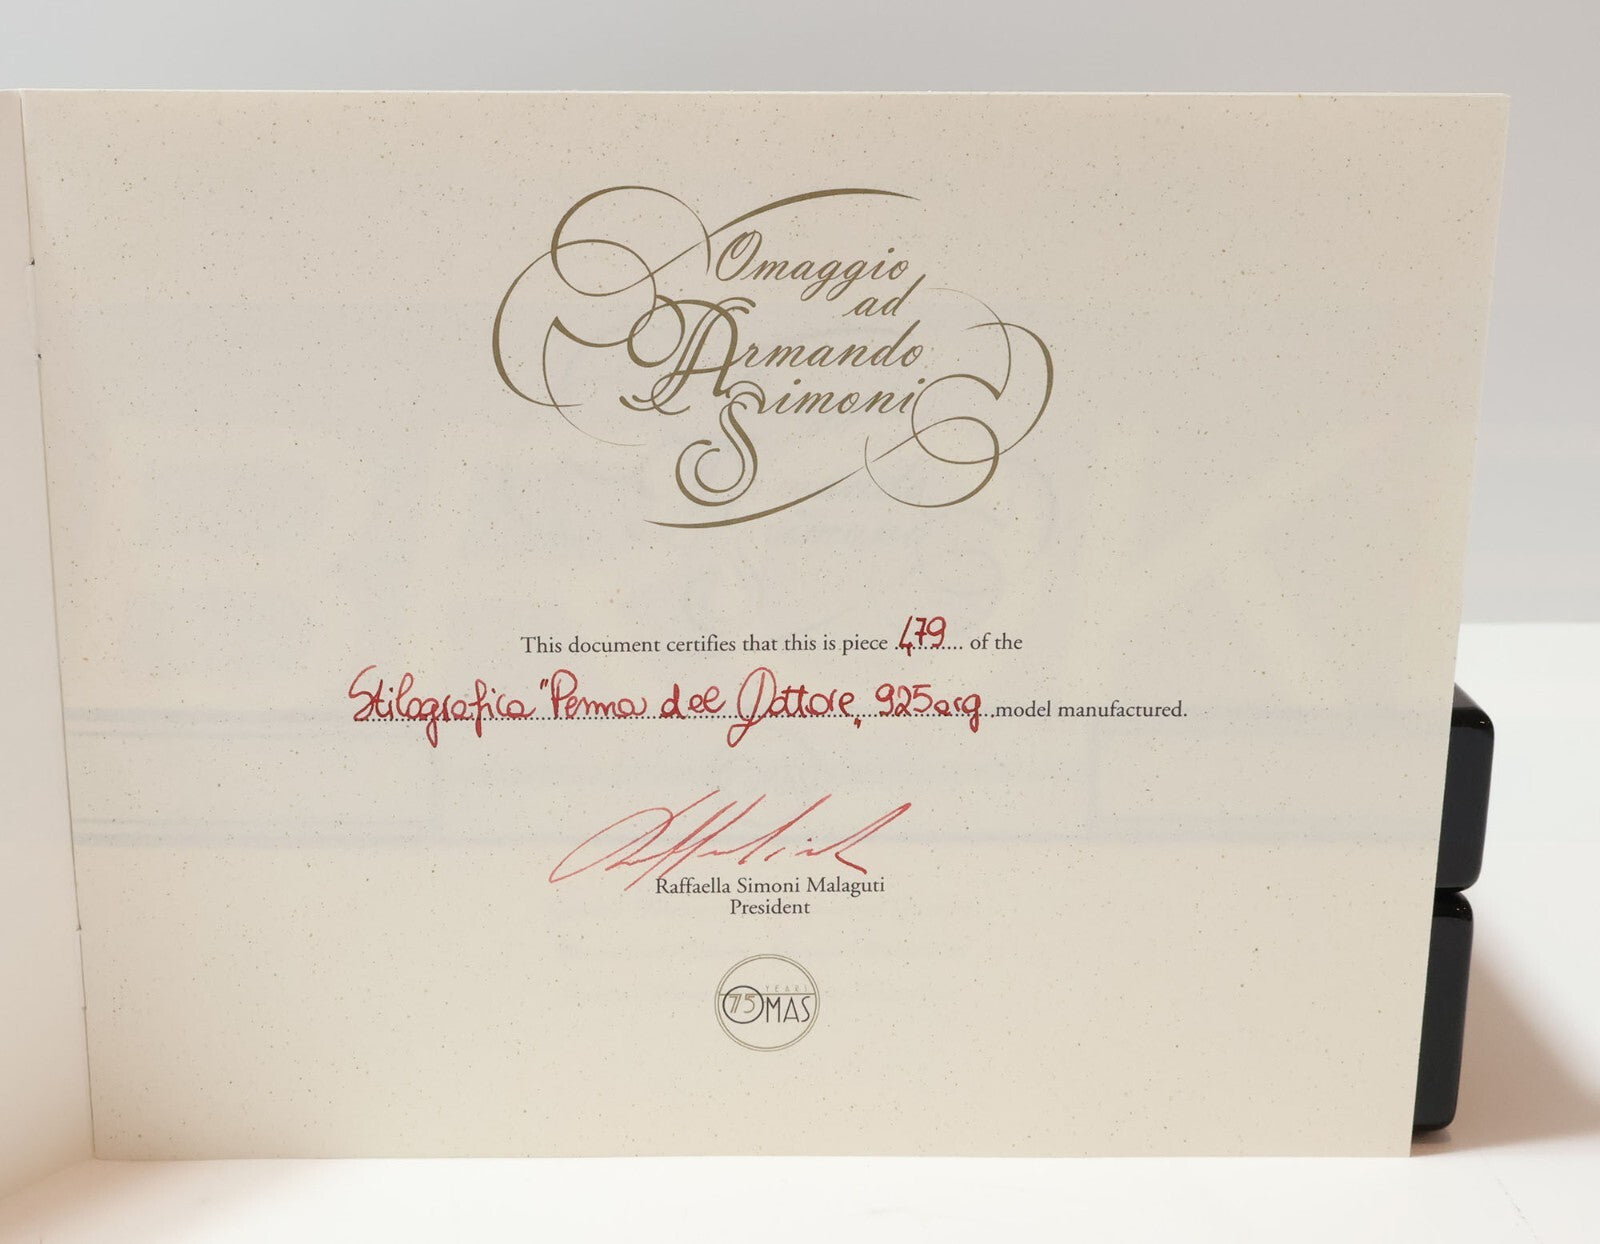 Omaggio
ad
Armando
Simoni
This document certifies that this is piece 479 of the
Stilografica "Penna del Dottore" 925arg model manufactured.
Raffaella Simoni Malaguti
President
YEARS
75 OMAS